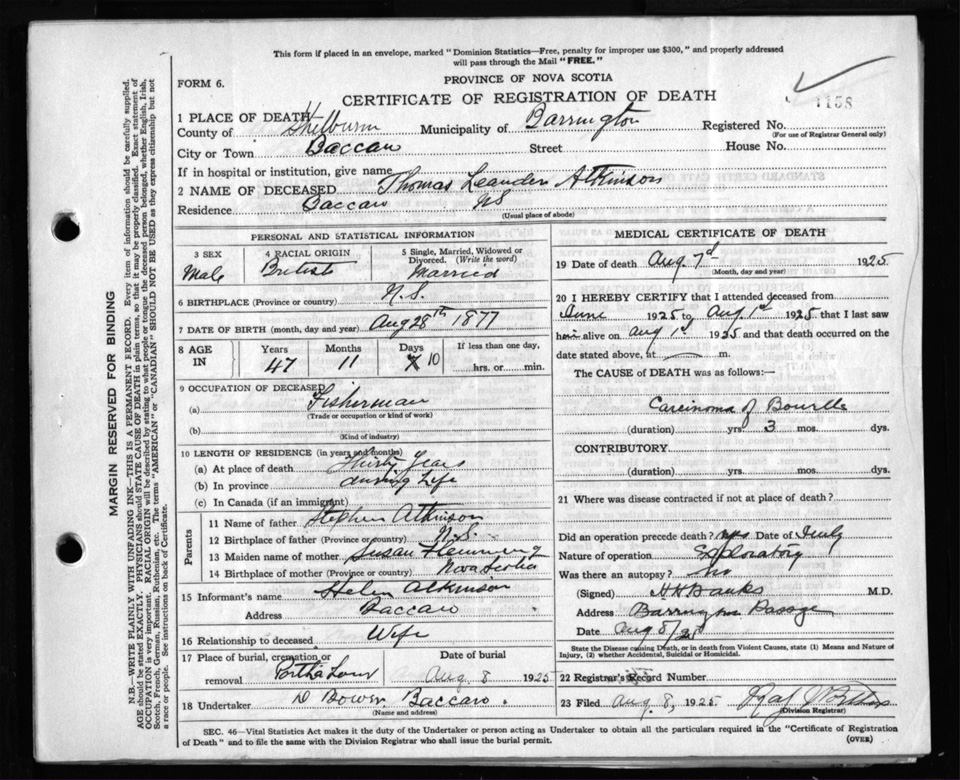 This form if placed in an envelope, marked "Dominion Statistics—Free, penalty for improper use $300," and properly addressed
will pass through the Mail "FREE."
FORM 6.
PROVINCE OF NOVA SCOTIA
CERTIFICATE OF REGISTRATION OF DEATH
1158
1 PLACE OF DEATH
County of Shelburn Municipality of Barrington Registered No.
(For use of Registrar General only)
City or Town Baccaro Street House No.
If in hospital or institution, give name
2 NAME OF DECEASED Thomas Leander Atkinson
Residence Baccaro NS
(Usual place of abode)
PERSONAL AND STATISTICAL INFORMATION
3 SEX 4 RACIAL ORIGIN 5 Single, Married, Widowed or
Divorced. (Write the word)
Male British Married
6 BIRTHPLACE (Province or country) N.S.
7 DATE OF BIRTH (month, day and year) Aug 28th 1877
8 AGE IN Years Months Days If less than one day,
47 11 10 hrs. or min.
9 OCCUPATION OF DECEASED
(a) Fisherman
(Trade or occupation or kind of work)
(b)
(Kind of industry)
10 LENGTH OF RESIDENCE (in years and months)
(a) At place of death Thirty Years
(b) In province during Life
(c) In Canada (if an immigrant)
Parents
11 Name of father Stephen Atkinson
12 Birthplace of father (Province or country) N.S.
13 Maiden name of mother Susan Flemming
14 Birthplace of mother (Province or country) Nova Scotia
15 Informant's name Helen Atkinson
Address Baccaro
16 Relationship to deceased Wife
17 Place of burial, cremation or Date of burial
removal Aug. 8 1925
18 Undertaker D Bower Baccaro.
(Name and address)
MEDICAL CERTIFICATE OF DEATH
19 Date of death Aug 7th 1925
(Month, day and year)
20 I HEREBY CERTIFY that I attended deceased from
June 1925 to Aug 1st 1925 that I last saw
him alive on Aug 1st 1925 and that death occurred on the
date stated above, at m.
The CAUSE of DEATH was as follows:—
Carcinoma of Bowells
(duration) yrs. 3 mos. dys.
CONTRIBUTORY
(duration) yrs. mos. dys.
21 Where was disease contracted if not at place of death?
Did an operation precede death? yes Date of July
Nature of operation Exploratory
Was there an autopsy? no
(Signed) M.D.
Address Barrington Passage
Date Aug 8/25
State the Disease causing Death, or in death from Violent Causes, state (1) Means and Nature of
Injury, (2) whether Accidental, Suicidal or Homicidal.
22 Registrar's Record Number
23 Filed Aug. 8, 1925.
(Division Registrar)
SEC. 46—Vital Statistics Act makes it the duty of the Undertaker or person acting as Undertaker to obtain all the particulars required in the "Certificate of Registration
of Death" and to file the same with the Division Registrar who shall issue the burial permit.
(OVER)
MARGIN RESERVED FOR BINDING
N.B.—WRITE PLAINLY WITH UNFADING INK—THIS IS A PERMANENT RECORD. Every item of information should be carefully supplied.
AGE should be stated EXACTLY. PHYSICIANS should STATE CAUSE OF DEATH in plain terms, so that it may be properly classified. Exact statement of
OCCUPATION is very important. RACIAL ORIGIN will be described by stating to what people or tongue the deceased person belonged, whether English, Irish,
Scotch, French, German, Russian, Ruthenian, etc. The terms "AMERICAN" or "CANADIAN" SHOULD NOT BE USED as they express citizenship but not
a race or people. See instructions on back of Certificate.